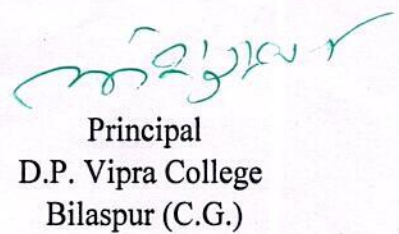 Principal
D.P. Vipra College
Bilaspur (C.G.)